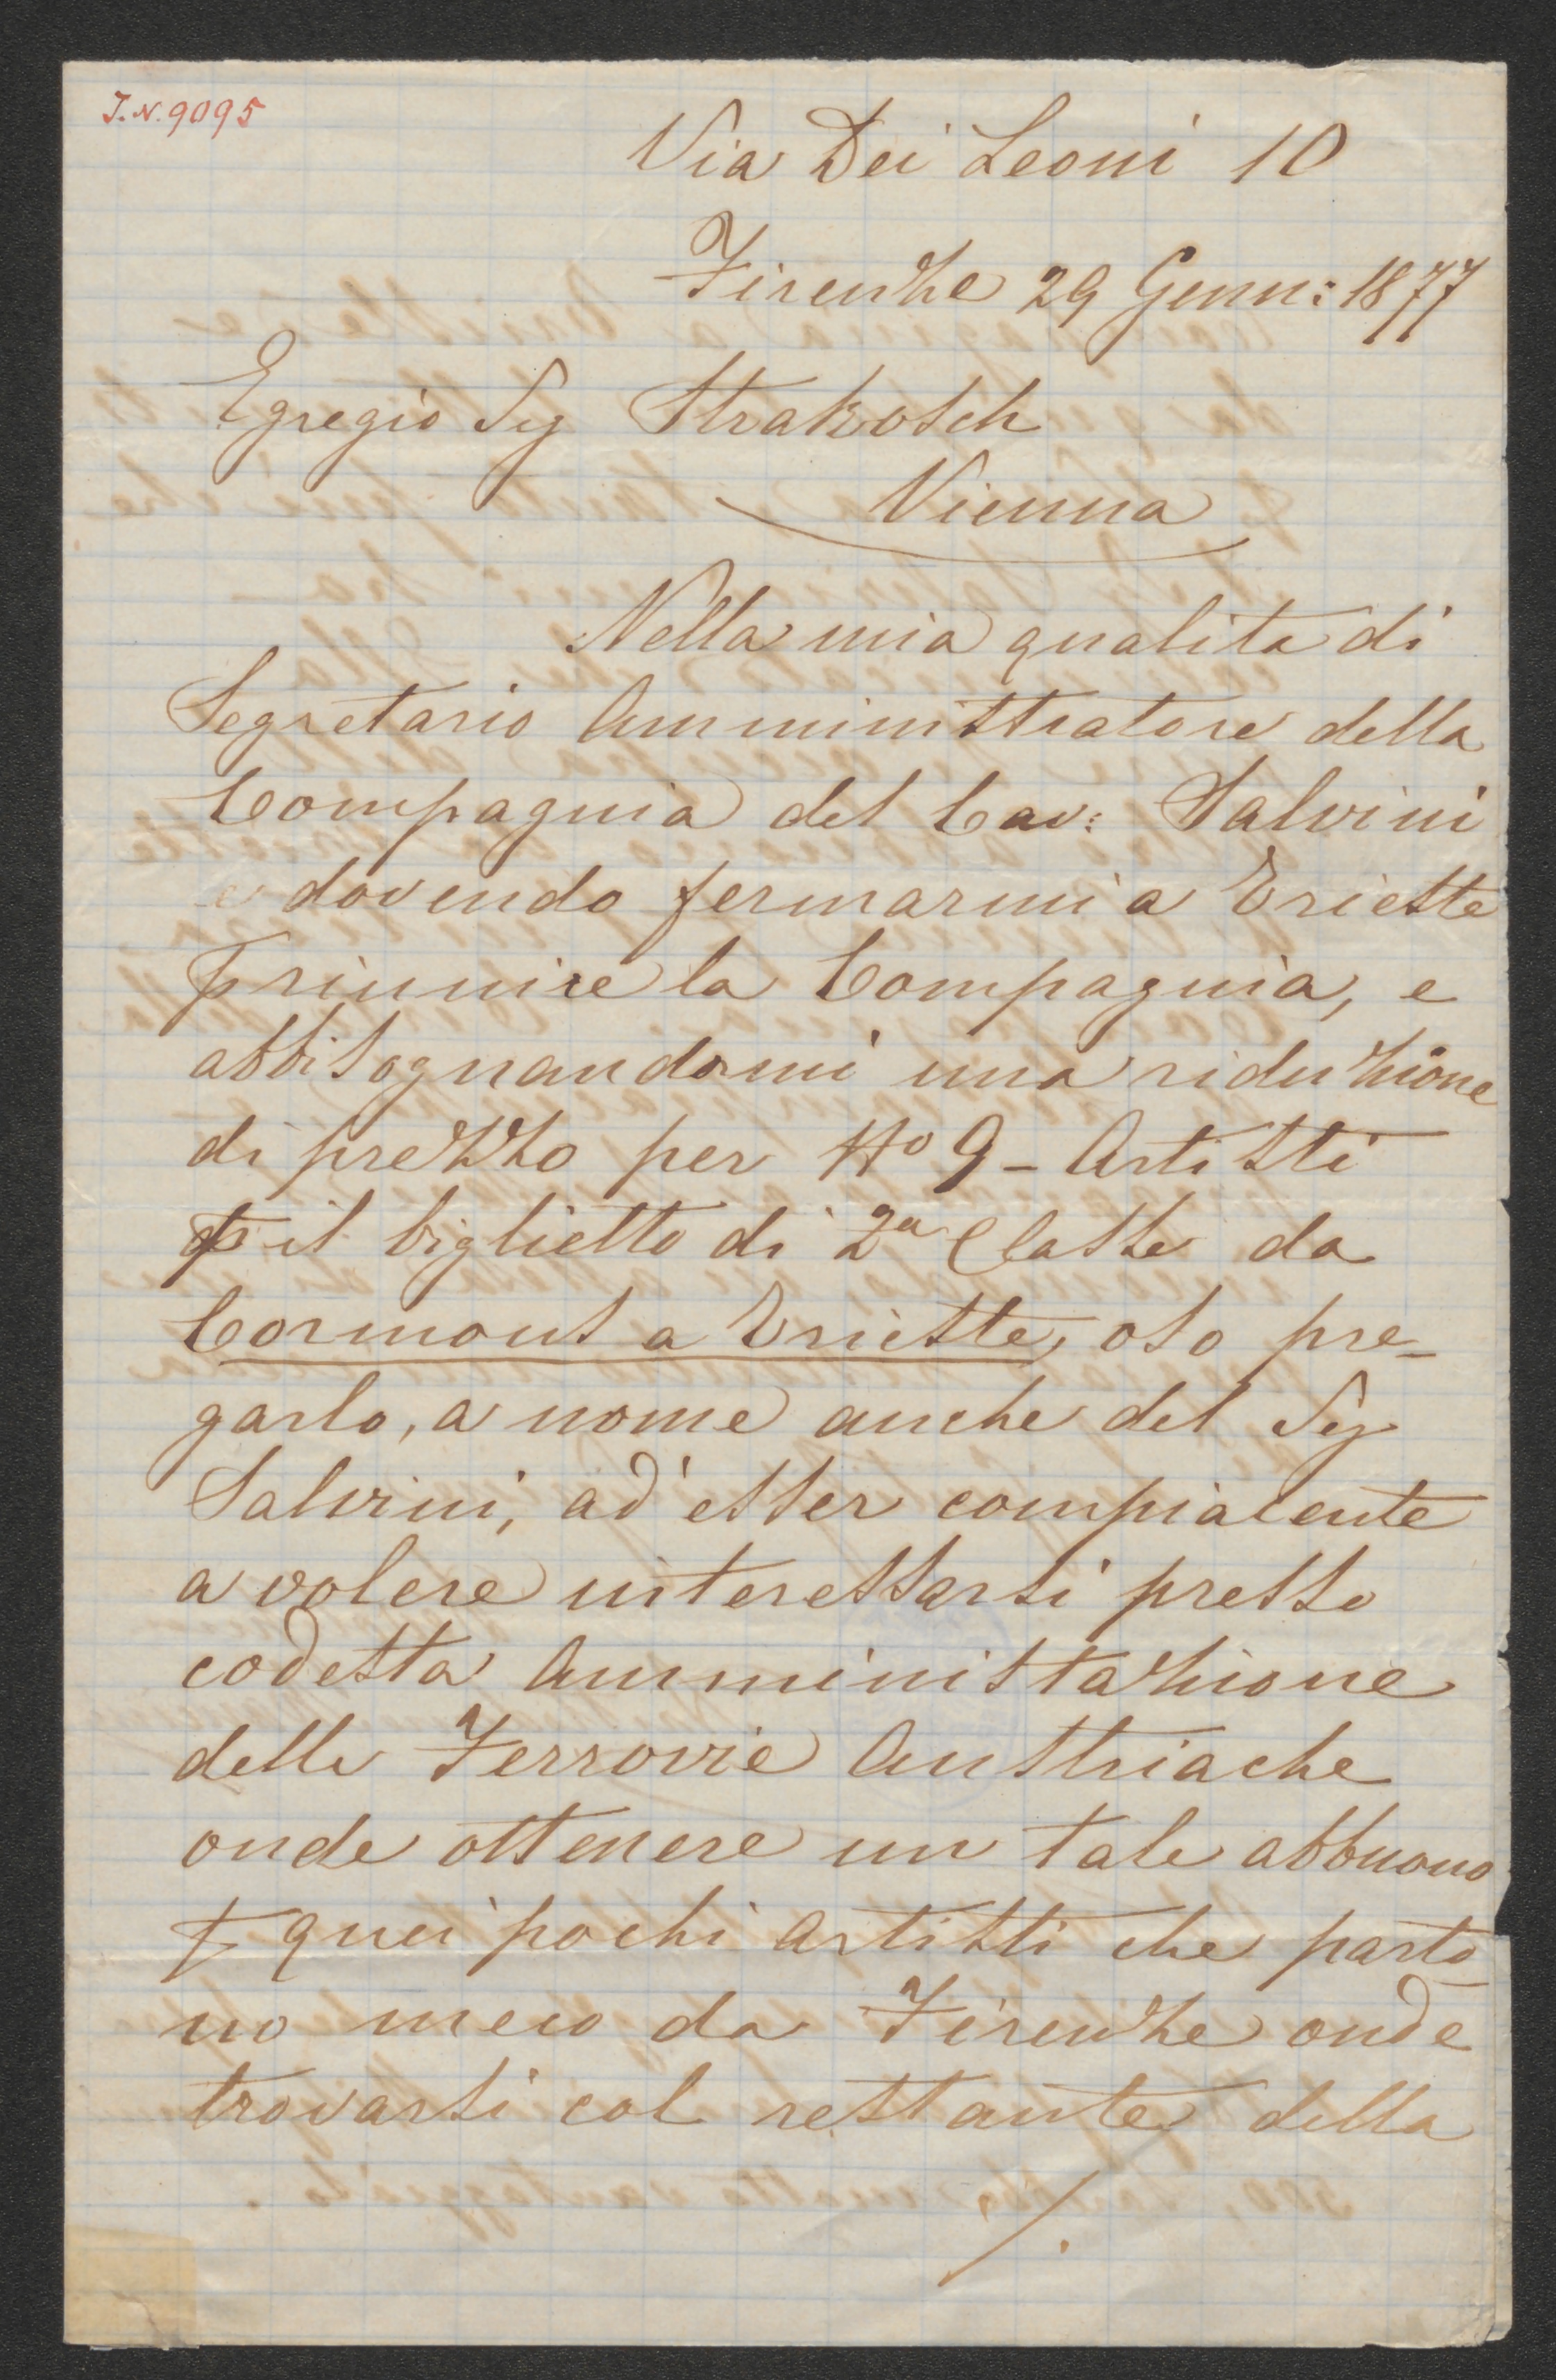 J.N. 9095
Via Dei Leoni 10
Firenze 29 Genn: 1877
Egregio Sig Strakosch
Vienna
Nella mia qualita di
Segretario Amministratore della
Compagnia del Cav: Salvini
e dovendo fermarmi a Trieste
p riunire la Compagnia, e
abbisognandomi una riduzione
di prezzo per No 9 - Artisti
p il biglietto di 2a Classe da
Cormons a Trieste, oso pre-
garlo, a nome anche del Sig
Salvini, ad' esser compiacente
a volere interessarsi presso
codesta Amministazione
delle Ferrovie Austriache
onde ottenere un tale abbuono
p quei pochi Artisti che parto
no meco da Firenze onde
trovarsi col restante della
/.